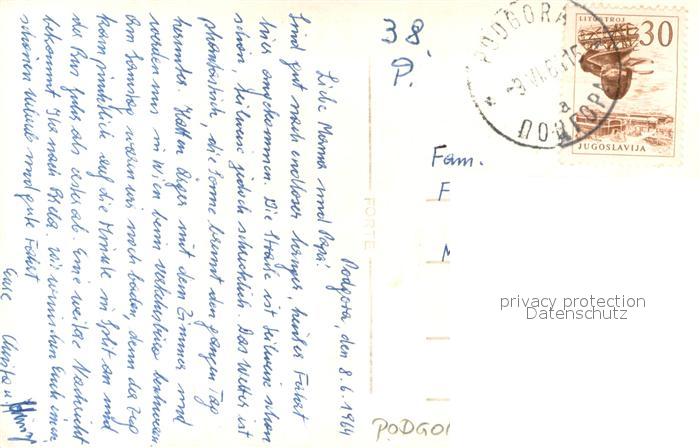 Podgora, den 8.6.1964
Liebe Mamma und Papa!
Sind gut nach endloser langer, heißer Fahrt
hier angekommen. Die Straße ist teilweise schon
schön, teilweise jedoch schrecklich. Das Wetter ist
phantastisch, die Sonne brennt den ganzen Tag
herunter. Hatten Ärger mit dem Zimmer und
werden uns in Wien beim Verkehrsbüro beschweren.
Am Samstag waren wir noch baden, denn der Zug
kam pünktlich auf die Minute in Split an und
der Bus fuhr als erster ab. Eine weitere Nachricht
bekommt Ihr nach Wir wünschen Euch einen
schönen Urlaub und gute Fahrt
Eure Christa u.
38.
P.
PODGORA
ПОДГОРА
a
LITOSTROJ
30
JUGOSLAVIJA
Fam.
F
M
FORTE
privacy protection
Datenschutz
PODGO